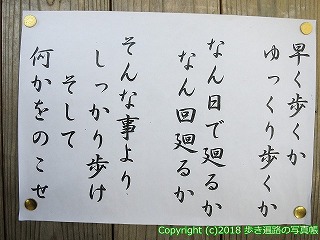 早く歩くか
ゆっくり歩くか
なん日で廻るか
なん回廻るか
そんな事より
しっかり歩け
そして
何かをのこせ
Copyright (c)2018 歩き遍路の写真帳